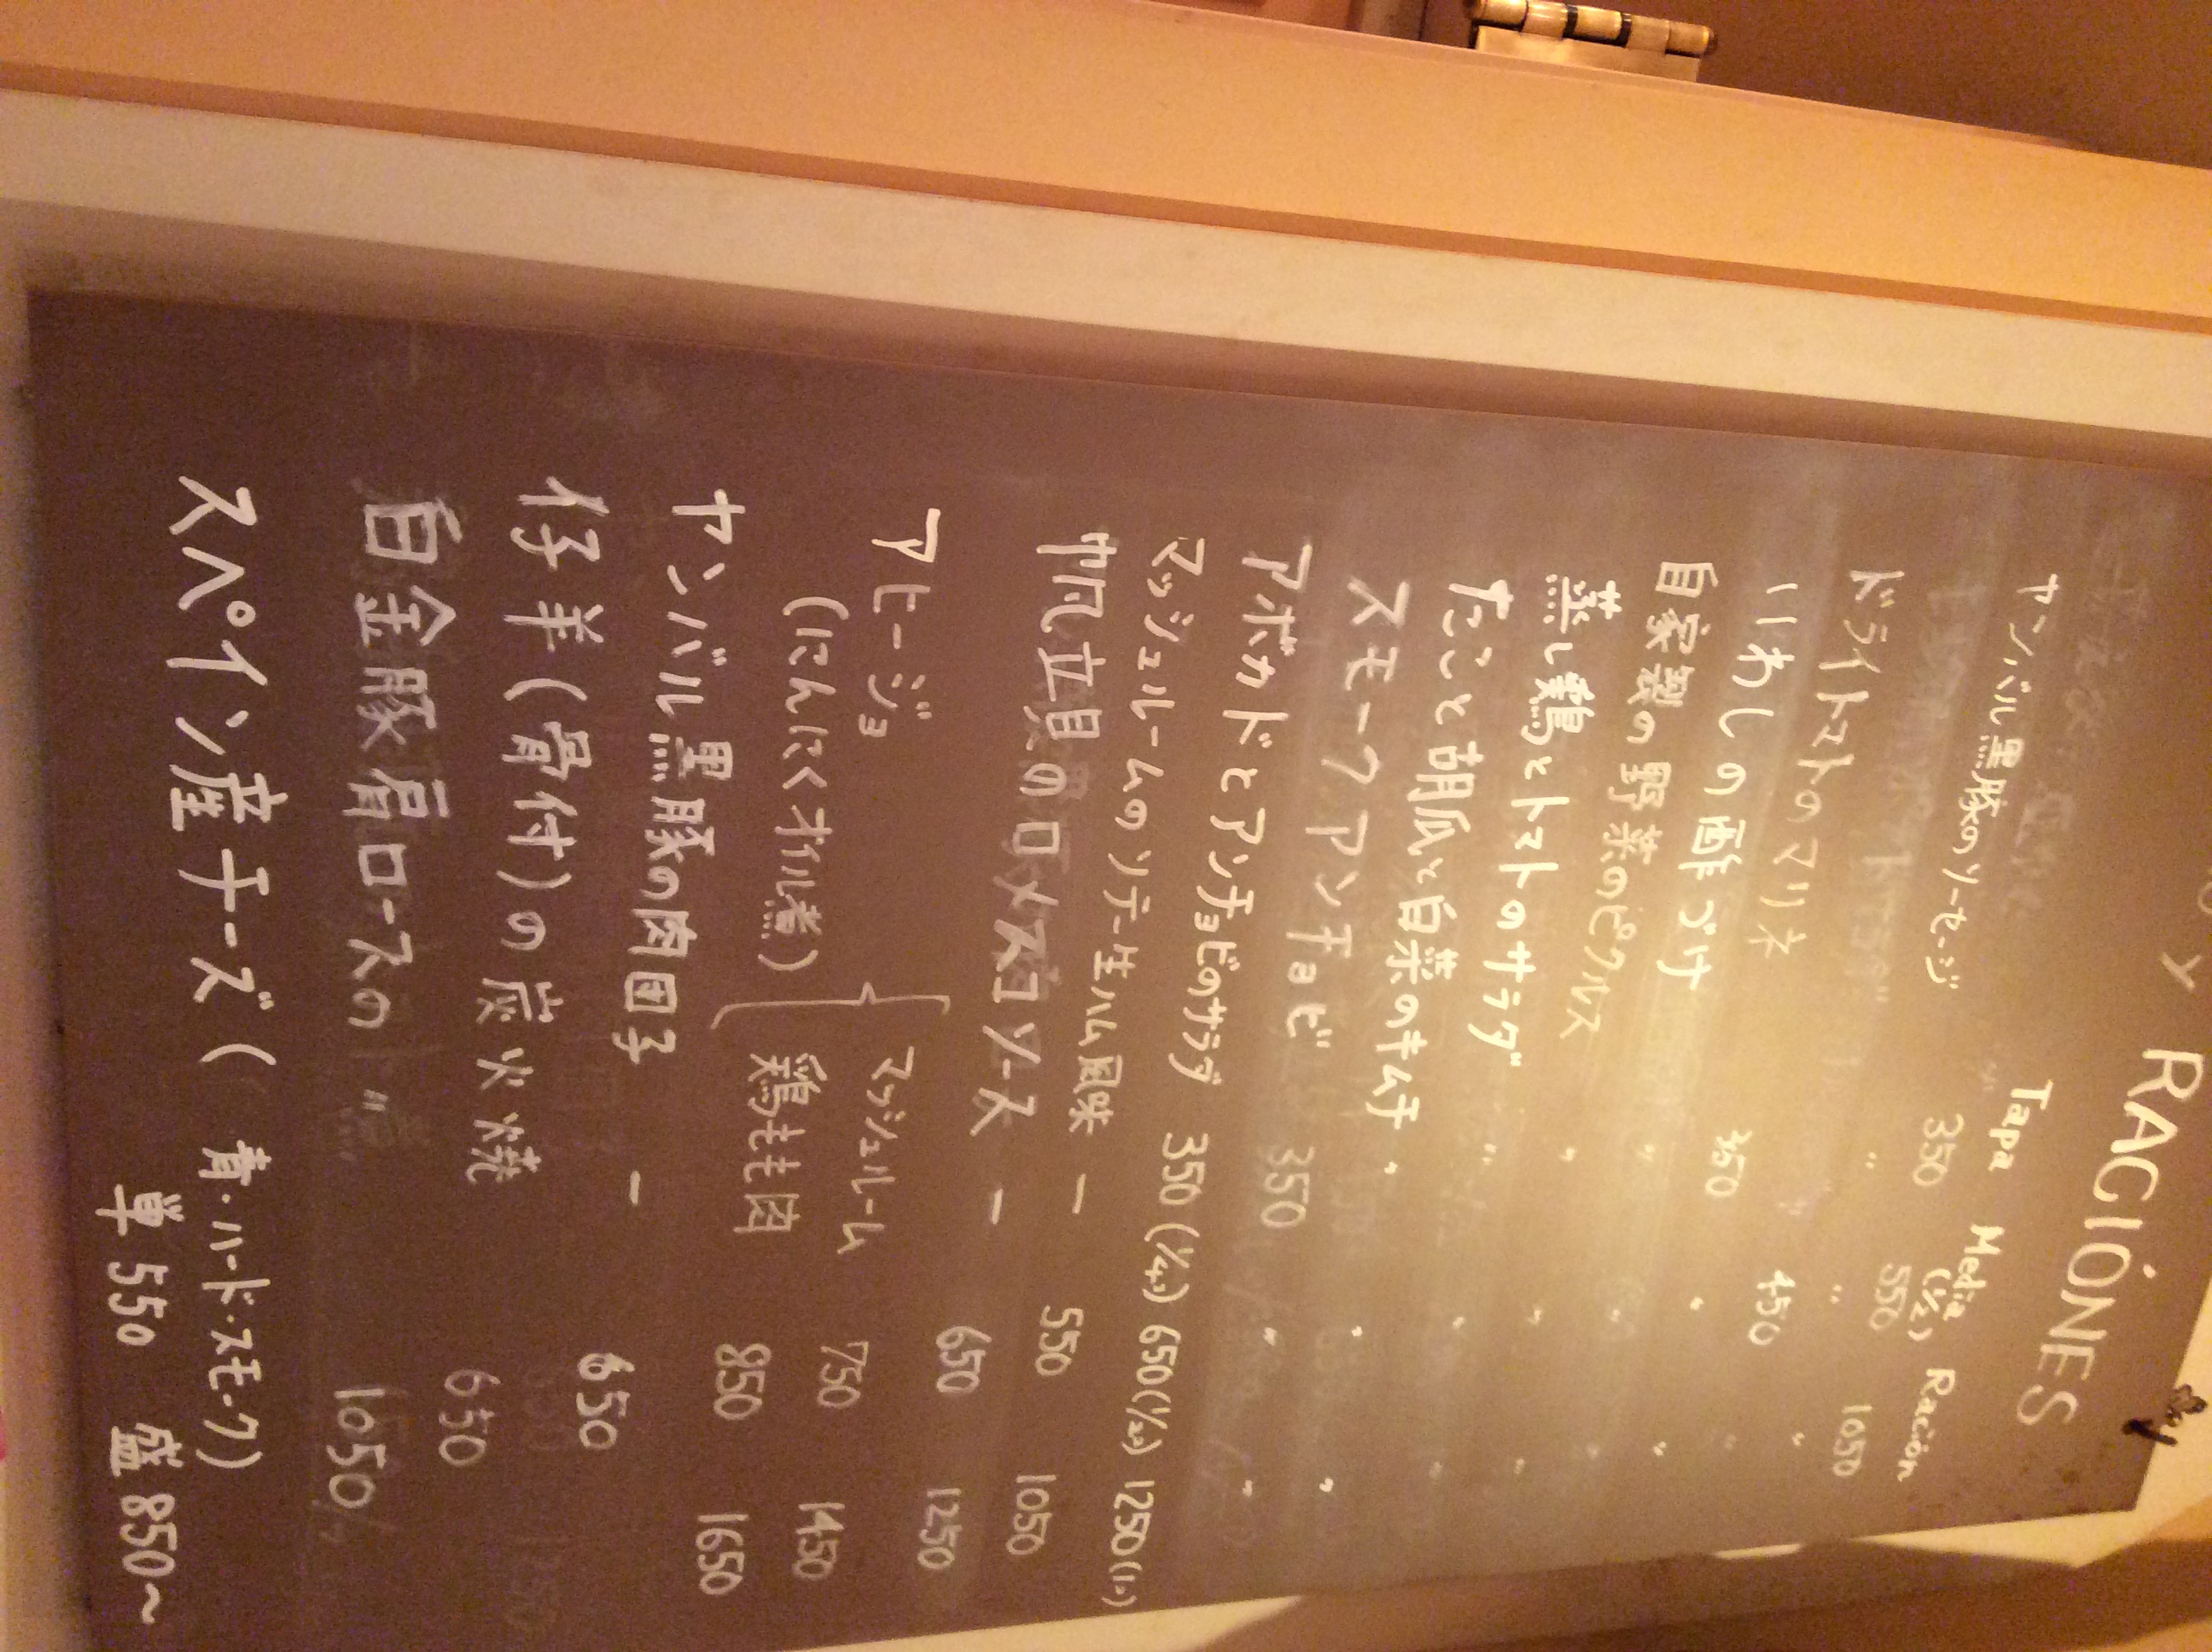 Y RACIÓNES
Tapa Media (1/2) Ración
ヤンバル黒豚のソーセージ 350 550 1050
ドライトマトのマリネ 〃 〃 〃
いわしの酢づけ 350 450
自家製の野菜のピクルス 〃 〃 〃
蒸し鶏とトマトのサラダ 〃 〃 〃
たこと胡瓜と白菜のキムチ 〃 〃 〃
スモークアンチョビ 350 〃 〃
アボカドとアンチョビのサラダ 350 (1/4コ) 650 (1/2コ) 1250 (1コ)
マッシュルームのソテー生ハム風味 - 550 1050
帆立貝のロメスコソース - 650 1250
アヒージョ マッシュルーム 750 1450
(にんにくオイル煮) 鶏もも肉 850 1650
ヤンバル黒豚の肉団子 - 650
仔羊(骨付)の炭火焼 650
白金豚肩ロースの 〃 1050
スペイン産チーズ (青・ハード・スモーク)
単 550 盛 850〜